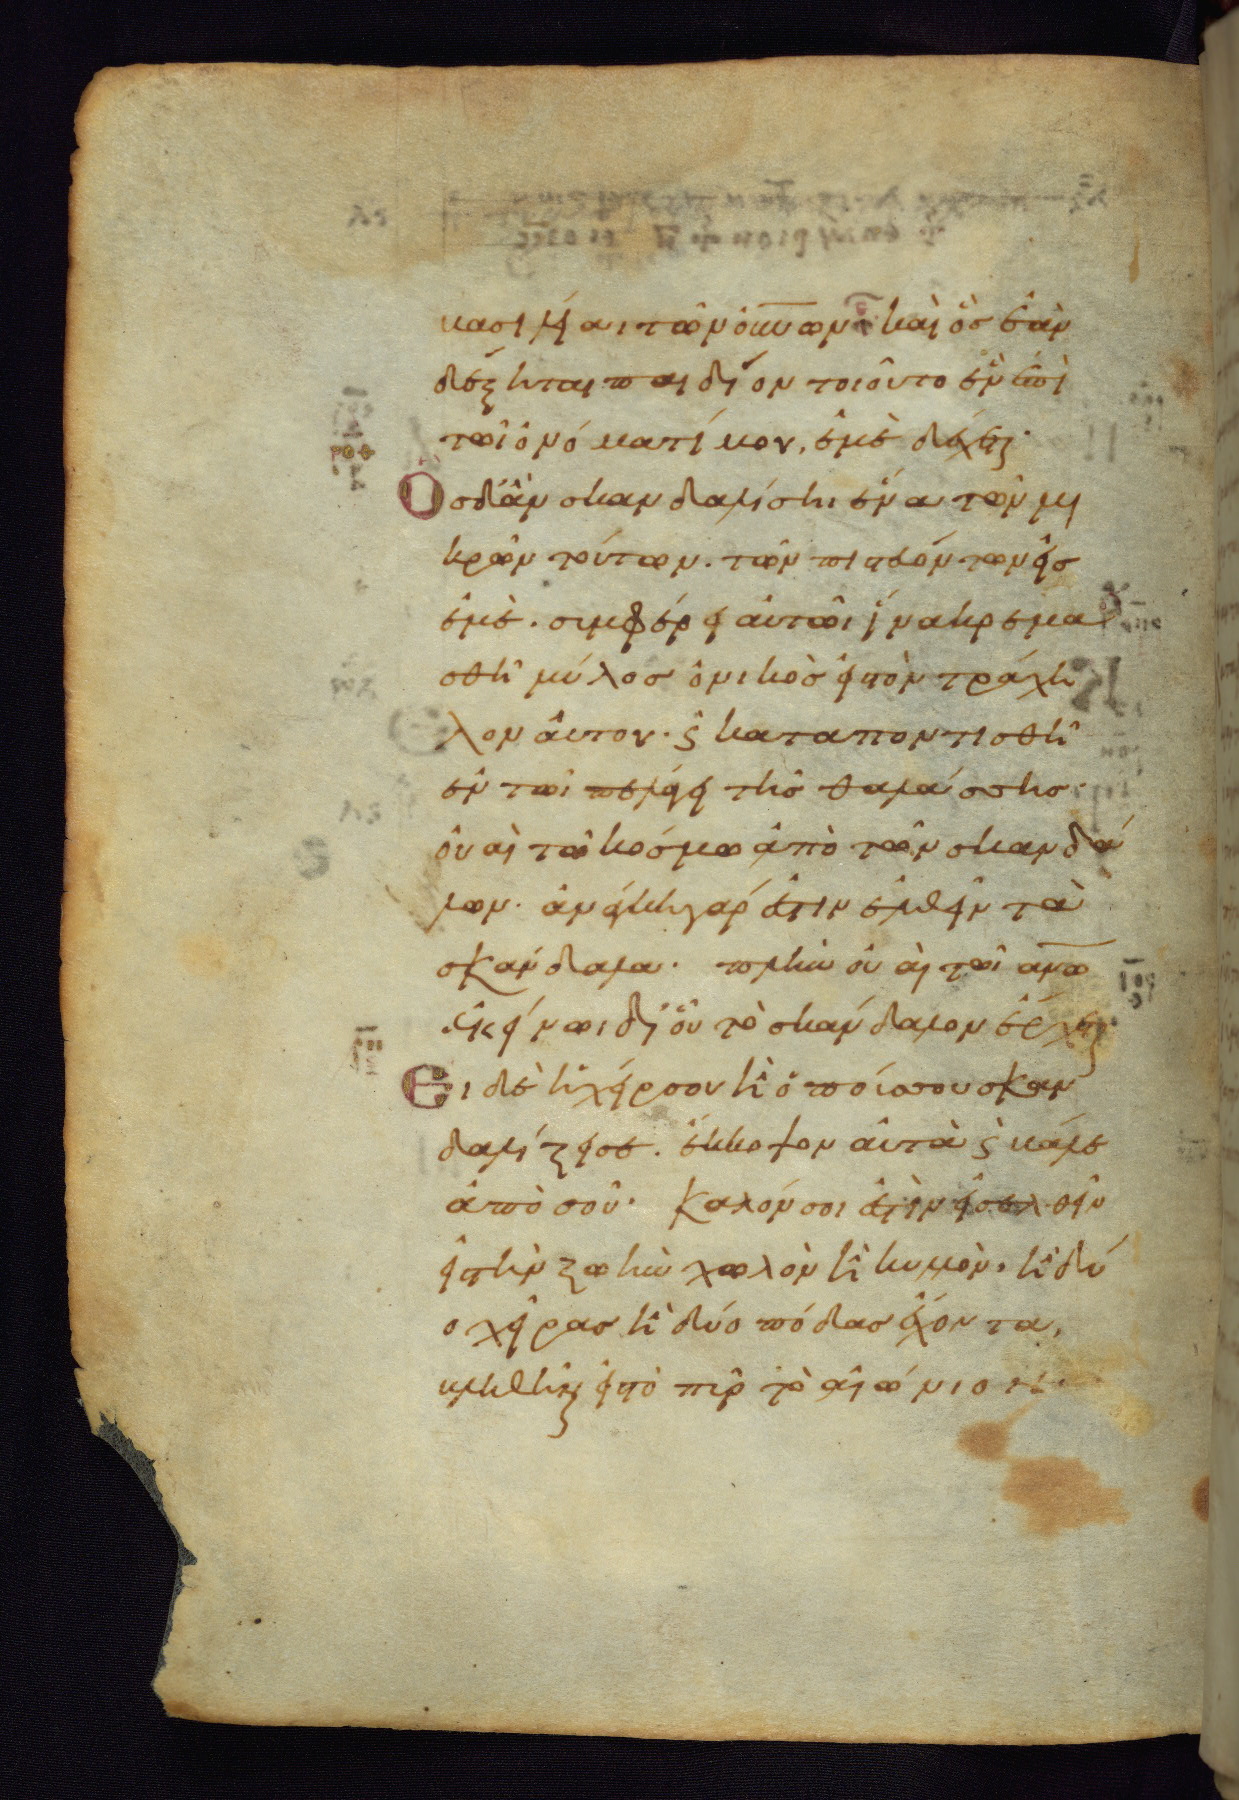 κασιλεία τῶν οὐνων· καὶ ὃς ἐὰν
δέξηται παιδίον τοιοῦτο ἓν ἐπὶ
τῶι ὀνόματί μου, ἐμὲ δέχεται·
Ὃς δ' ἂν σκανδαλίση ἕνα τῶν μι
κρῶν τούτων. τῶν πιστευόντων εἰς
ἐμὲ. συμφέρει αὐτῶι ἵνα κρεμα
σθῆ μύλος ὀνικὸς εἰς τὸν τράχη
λον αὐτοῦ. ϗ καταποντισθῆ
ἐν τῶι πελάγει τῆς θαλάσσης·
οὐαὶ τῶ κόσμω ἀπὸ τῶν σκανδά
λων. ἀνάγκη γάρ ἐστιν ἐλθεῖν τὰ
σκάνδαλα. πλὴν οὐαὶ τῶι ἀνω
ἐκείνωι δι' οὗ τὸ σκάνδαλον ἔρχεται·
Εἰ δὲ ἡ χείρ σου ἢ ὁ πούς σου σκαν
δαλίζει σε. ἔκκοψον αὐτὰ ϗ βάλε
ἀπὸ σοῦ. καλόν σοι ἐστὶν εἰσελθεῖν
εἰς τὴν ζωὴν χωλὸν ἢ κυλλὸν. ἢ δύ
ο χεῖρας ἢ δύο πόδας ἔχοντα,
βληθῆναι εἰς τὸ πῦρ τὸ αἰώνιον·